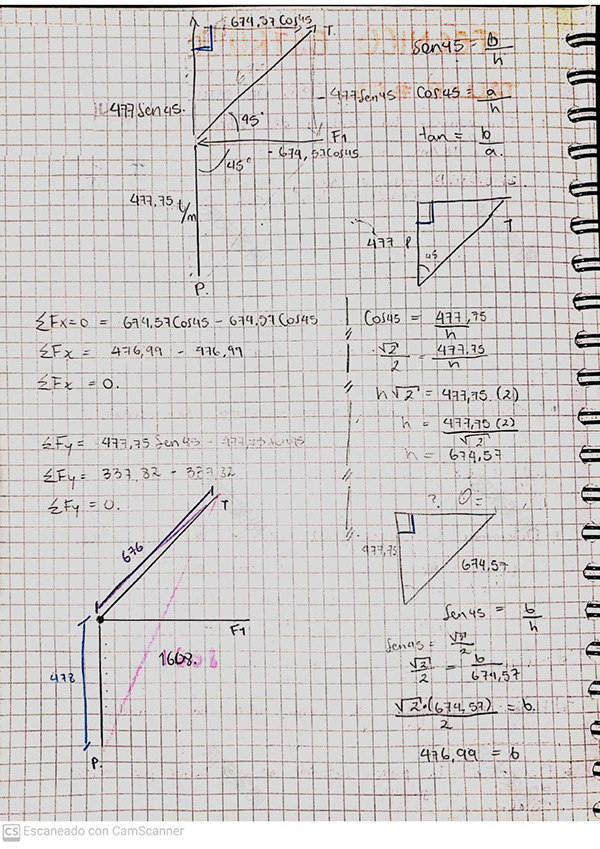 674,57 Cos45
T.
477 Sen45.
45°
- 477 Sen45
F1
- 674,57 Cos45
45°
477,75 t/m
P.
Sen45 = b/h
Cos45 = a/h
tan = b/a.
477 P
T
45
ΣFx=0 = 674,57 Cos45 - 674,57 Cos45
ΣFx = 476,99 - 476,99
ΣFx = 0.
ΣFy = 477,75 Sen45 - 477,75 Sen45
ΣFy = 337,82 - 337,82
ΣFy = 0.
Cos45 = 477,75/h
√2/2 = 477,75/h
h√2 = 477,75 (2)
h = 477,75 (2)/√2
h = 674,57
? θ=
477,75
674,57
Sen45 = b/h
Sen45 = √2/2
√2/2 = b/674,57
√2·(674,57)/2 = b.
476,99 = b
T
676
F1
1608.
478
P.
CS Escaneado con CamScanner